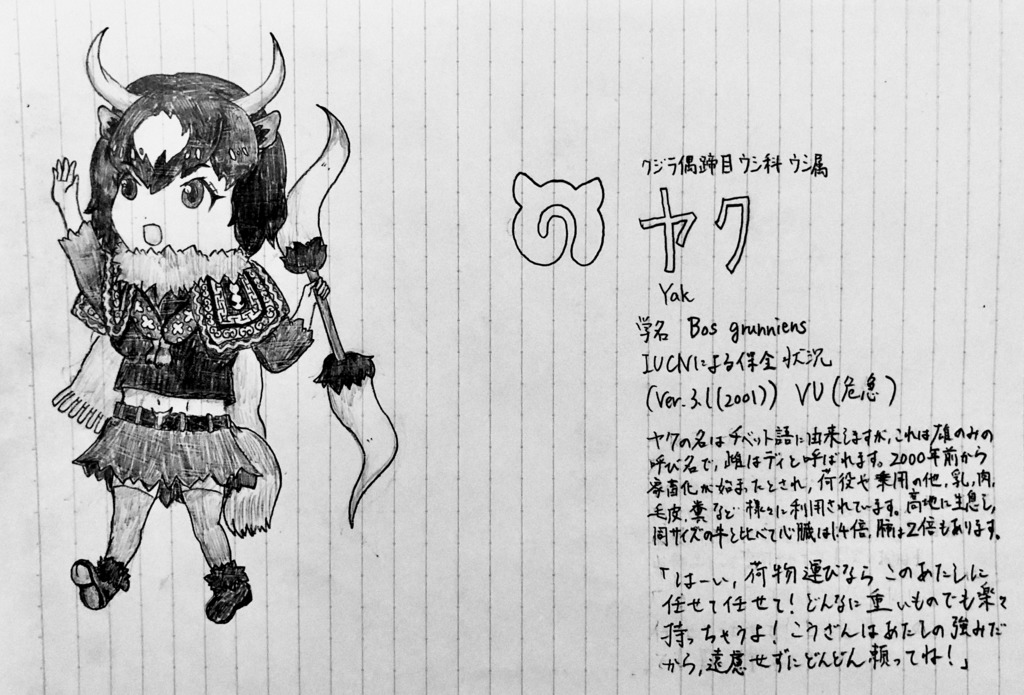 クジラ偶蹄目ウシ科ウシ属
ヤク
Yak
学名 Bos grunniens
IUCNによる保全状況
(Ver.3.1(2001)) VU(危急)
ヤクの名はチベット語に由来しますが,これは雄のみの
呼び名で,雌はディと呼ばれます。2000年前から
家畜化が始まったとされ,荷役や乗用の他,乳,肉,
毛皮,糞など様々に利用されています。高地に生息し,
同サイズの牛と比べて心臓は1.4倍,肺は2倍もあります。
「はーい,荷物運びならこのあたしに
任せて任せて!どんなに重いものでも楽々
持っちゃうよ!こうざんはあたしの強みだ
から,遠慮せずにどんどん頼ってね!」